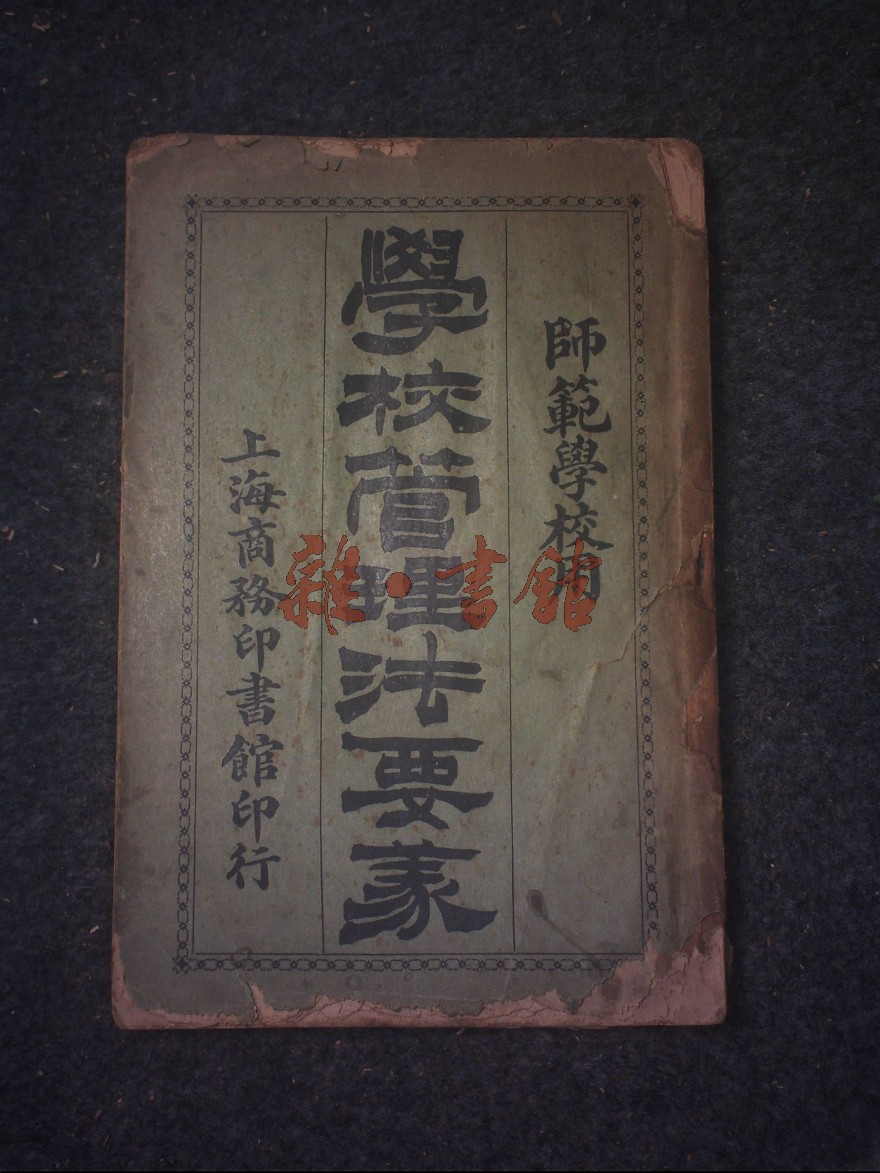 師範學校用
學校管理法要義
上海商務印書館印行
雜·書館